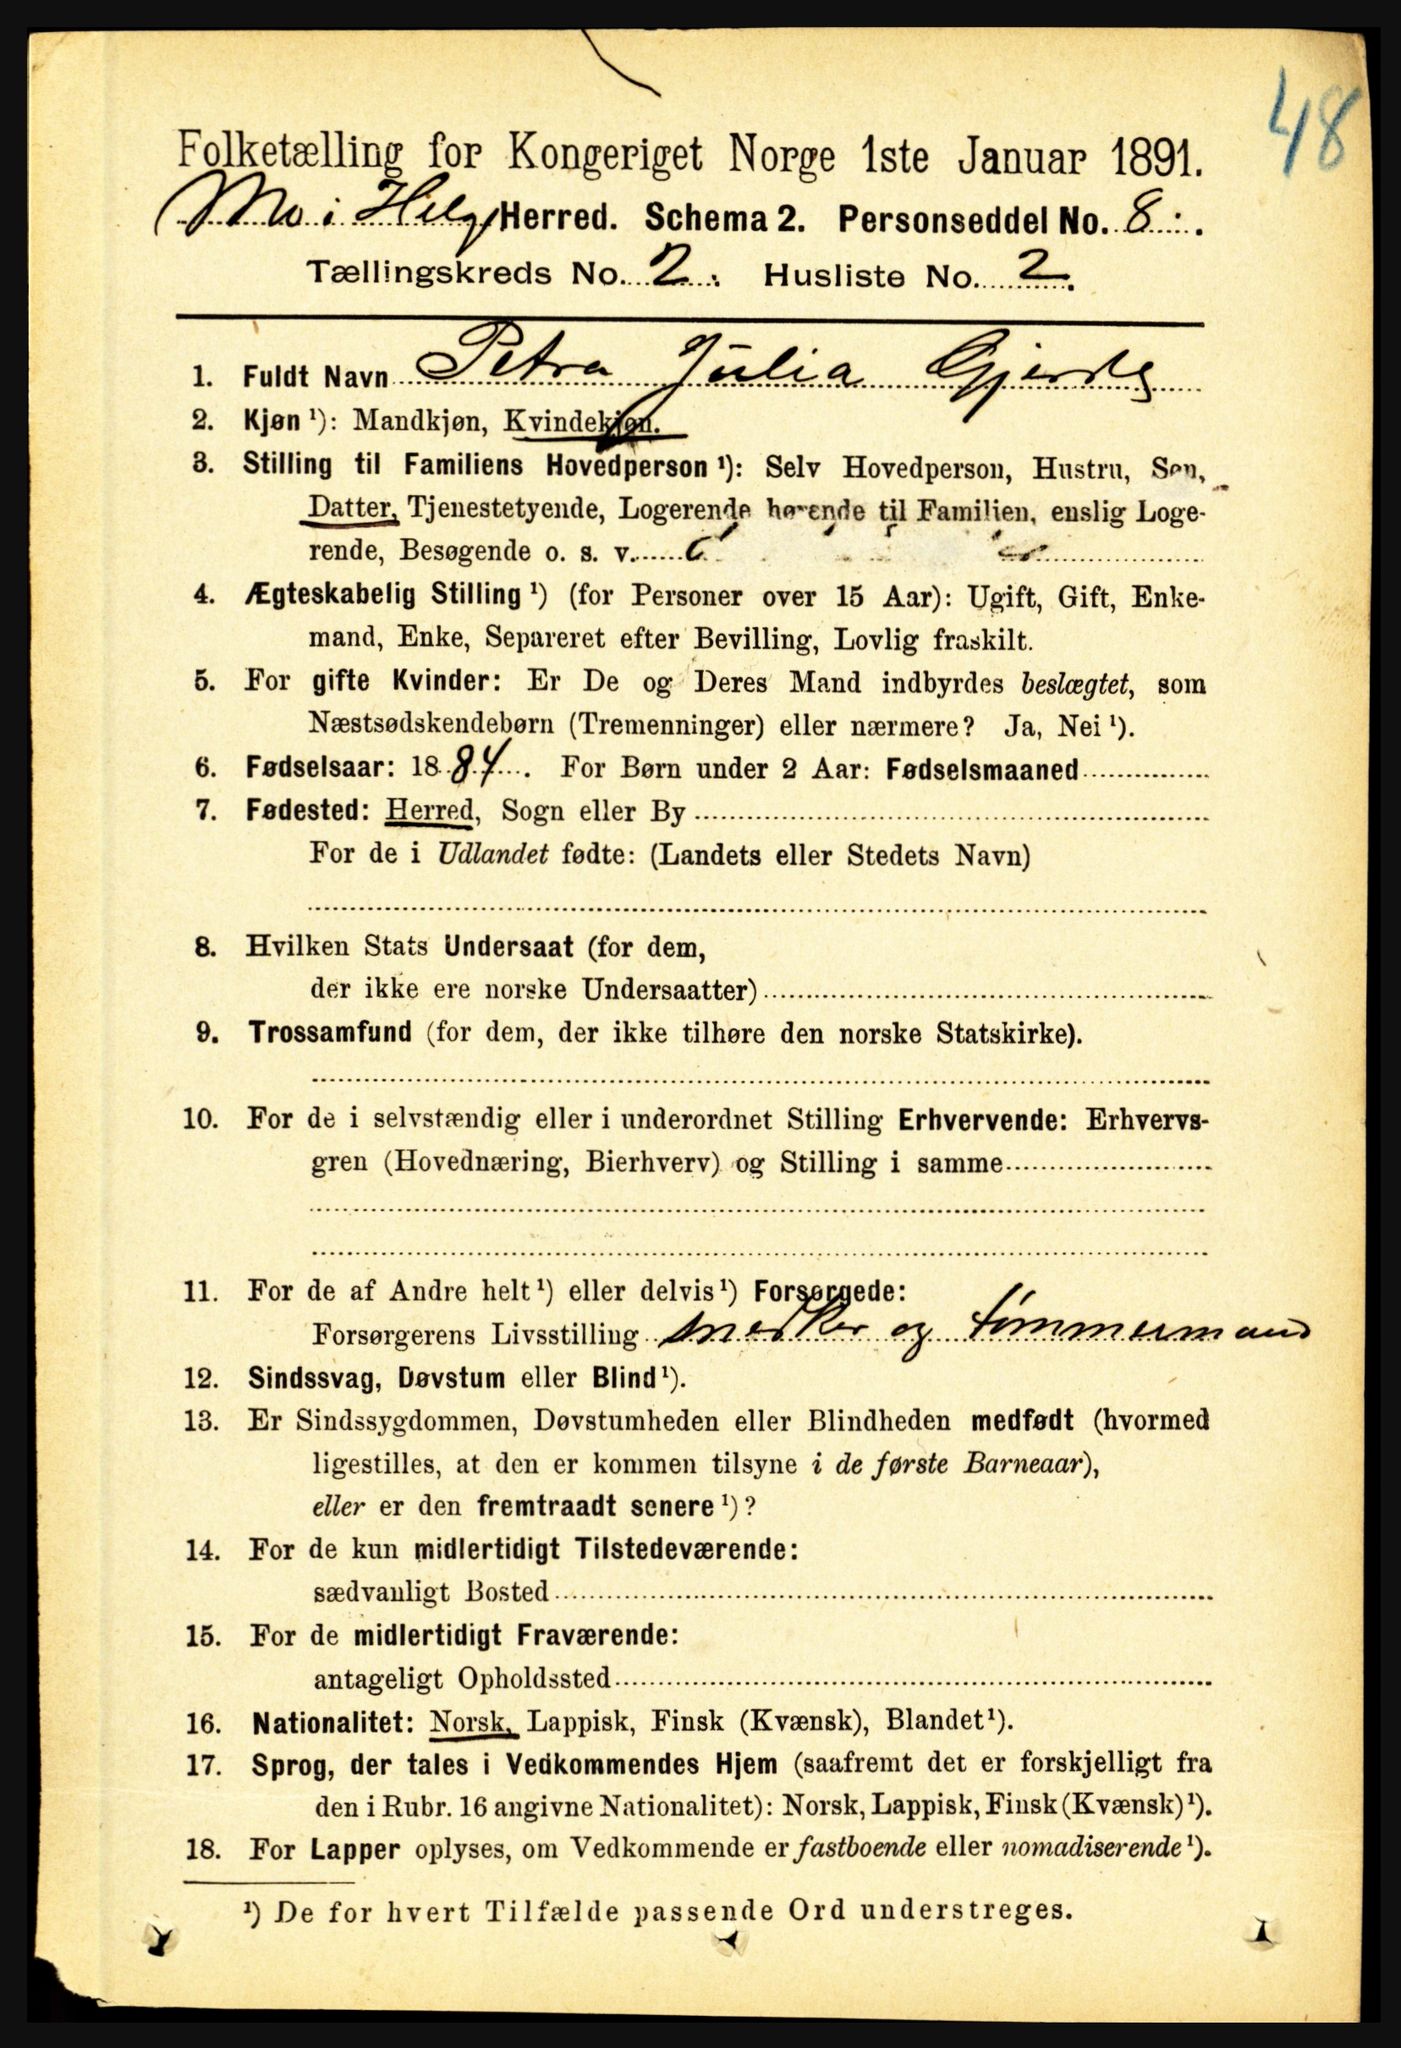 48
Folketælling for Kongeriget Norge 1ste Januar 1891.
Mo i Helg Herred. Schema 2. Personseddel No. 8.
Tællingskreds No. 2. Husliste No. 2.
1. Fuldt Navn Petra Julia Gjerde
2. Kjøn ¹): Mandkjøn, Kvindekjøn.
3. Stilling til Familiens Hovedperson ¹): Selv Hovedperson, Hustru, Søn,
Datter, Tjenestetyende, Logerende hørende til Familien, enslig Loge-
rende, Besøgende o. s. v.
4. Ægteskabelig Stilling ¹) (for Personer over 15 Aar): Ugift, Gift, Enke-
mand, Enke, Separeret efter Bevilling, Lovlig fraskilt.
5. For gifte Kvinder: Er De og Deres Mand indbyrdes beslægtet, som
Næstsødskendebørn (Tremenninger) eller nærmere? Ja, Nei ¹).
6. Fødselsaar: 1884. For Børn under 2 Aar: Fødselsmaaned
7. Fødested: Herred, Sogn eller By
For de i Udlandet fødte: (Landets eller Stedets Navn)
8. Hvilken Stats Undersaat (for dem,
der ikke ere norske Undersaatter)
9. Trossamfund (for dem, der ikke tilhøre den norske Statskirke).
10. For de i selvstændig eller i underordnet Stilling Erhvervende: Erhvervs-
gren (Hovednæring, Bierhverv) og Stilling i samme
11. For de af Andre helt ¹) eller delvis ¹) Forsørgede:
Forsørgerens Livsstilling og tømmermand
12. Sindssvag, Døvstum eller Blind ¹).
13. Er Sindssygdommen, Døvstumheden eller Blindheden medfødt (hvormed
ligestilles, at den er kommen tilsyne i de første Barneaar),
eller er den fremtraadt senere ¹)?
14. For de kun midlertidigt Tilstedeværende:
sædvanligt Bosted
15. For de midlertidigt Fraværende:
antageligt Opholdssted
16. Nationalitet: Norsk, Lappisk, Finsk (Kvænsk), Blandet ¹).
17. Sprog, der tales i Vedkommendes Hjem (saafremt det er forskjelligt fra
den i Rubr. 16 angivne Nationalitet): Norsk, Lappisk, Finsk (Kvænsk) ¹).
18. For Lapper oplyses, om Vedkommende er fastboende eller nomadiserende ¹).
¹) De for hvert Tilfælde passende Ord understreges.